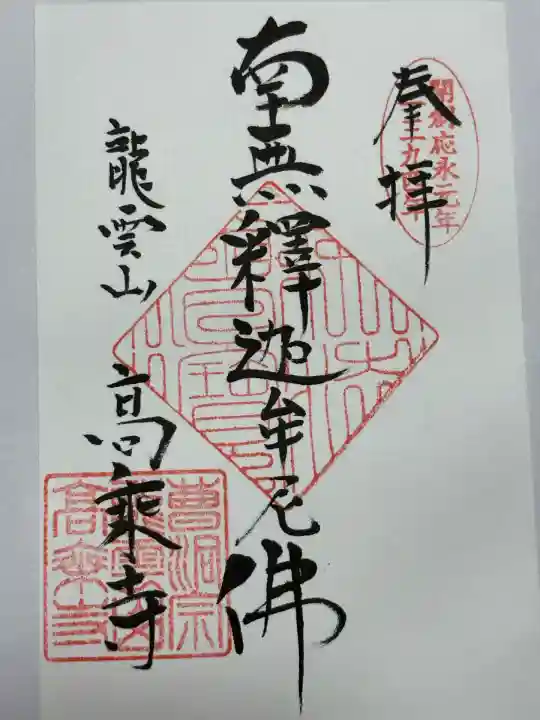 奉拝
開創応永元年
南無釋迦牟尼佛
龍雲山 高乗寺
曹洞宗
龍雲山
高乗寺